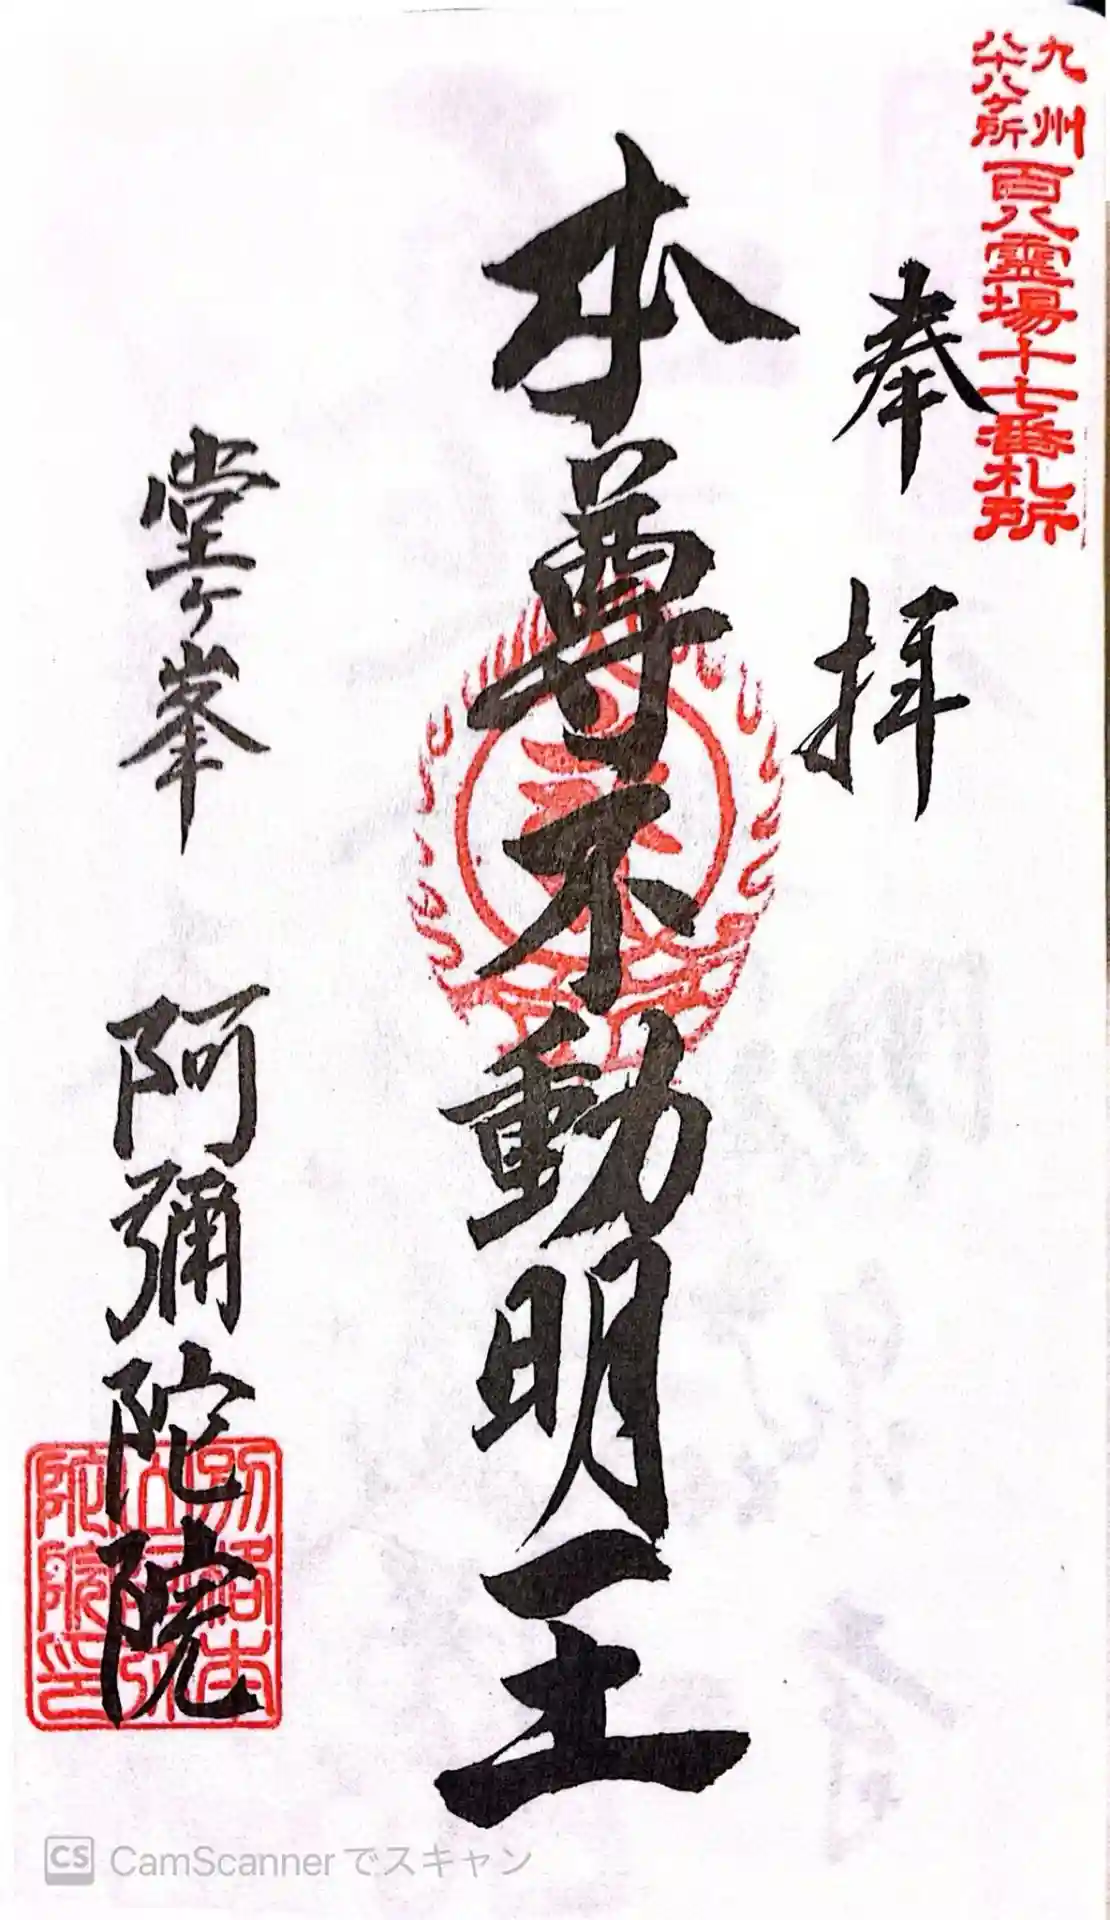 九州八十八ヶ所百八霊場十七番札所
奉拝
本尊不動明王
堂ヶ峯 阿彌陀院
CS CamScannerでスキャン